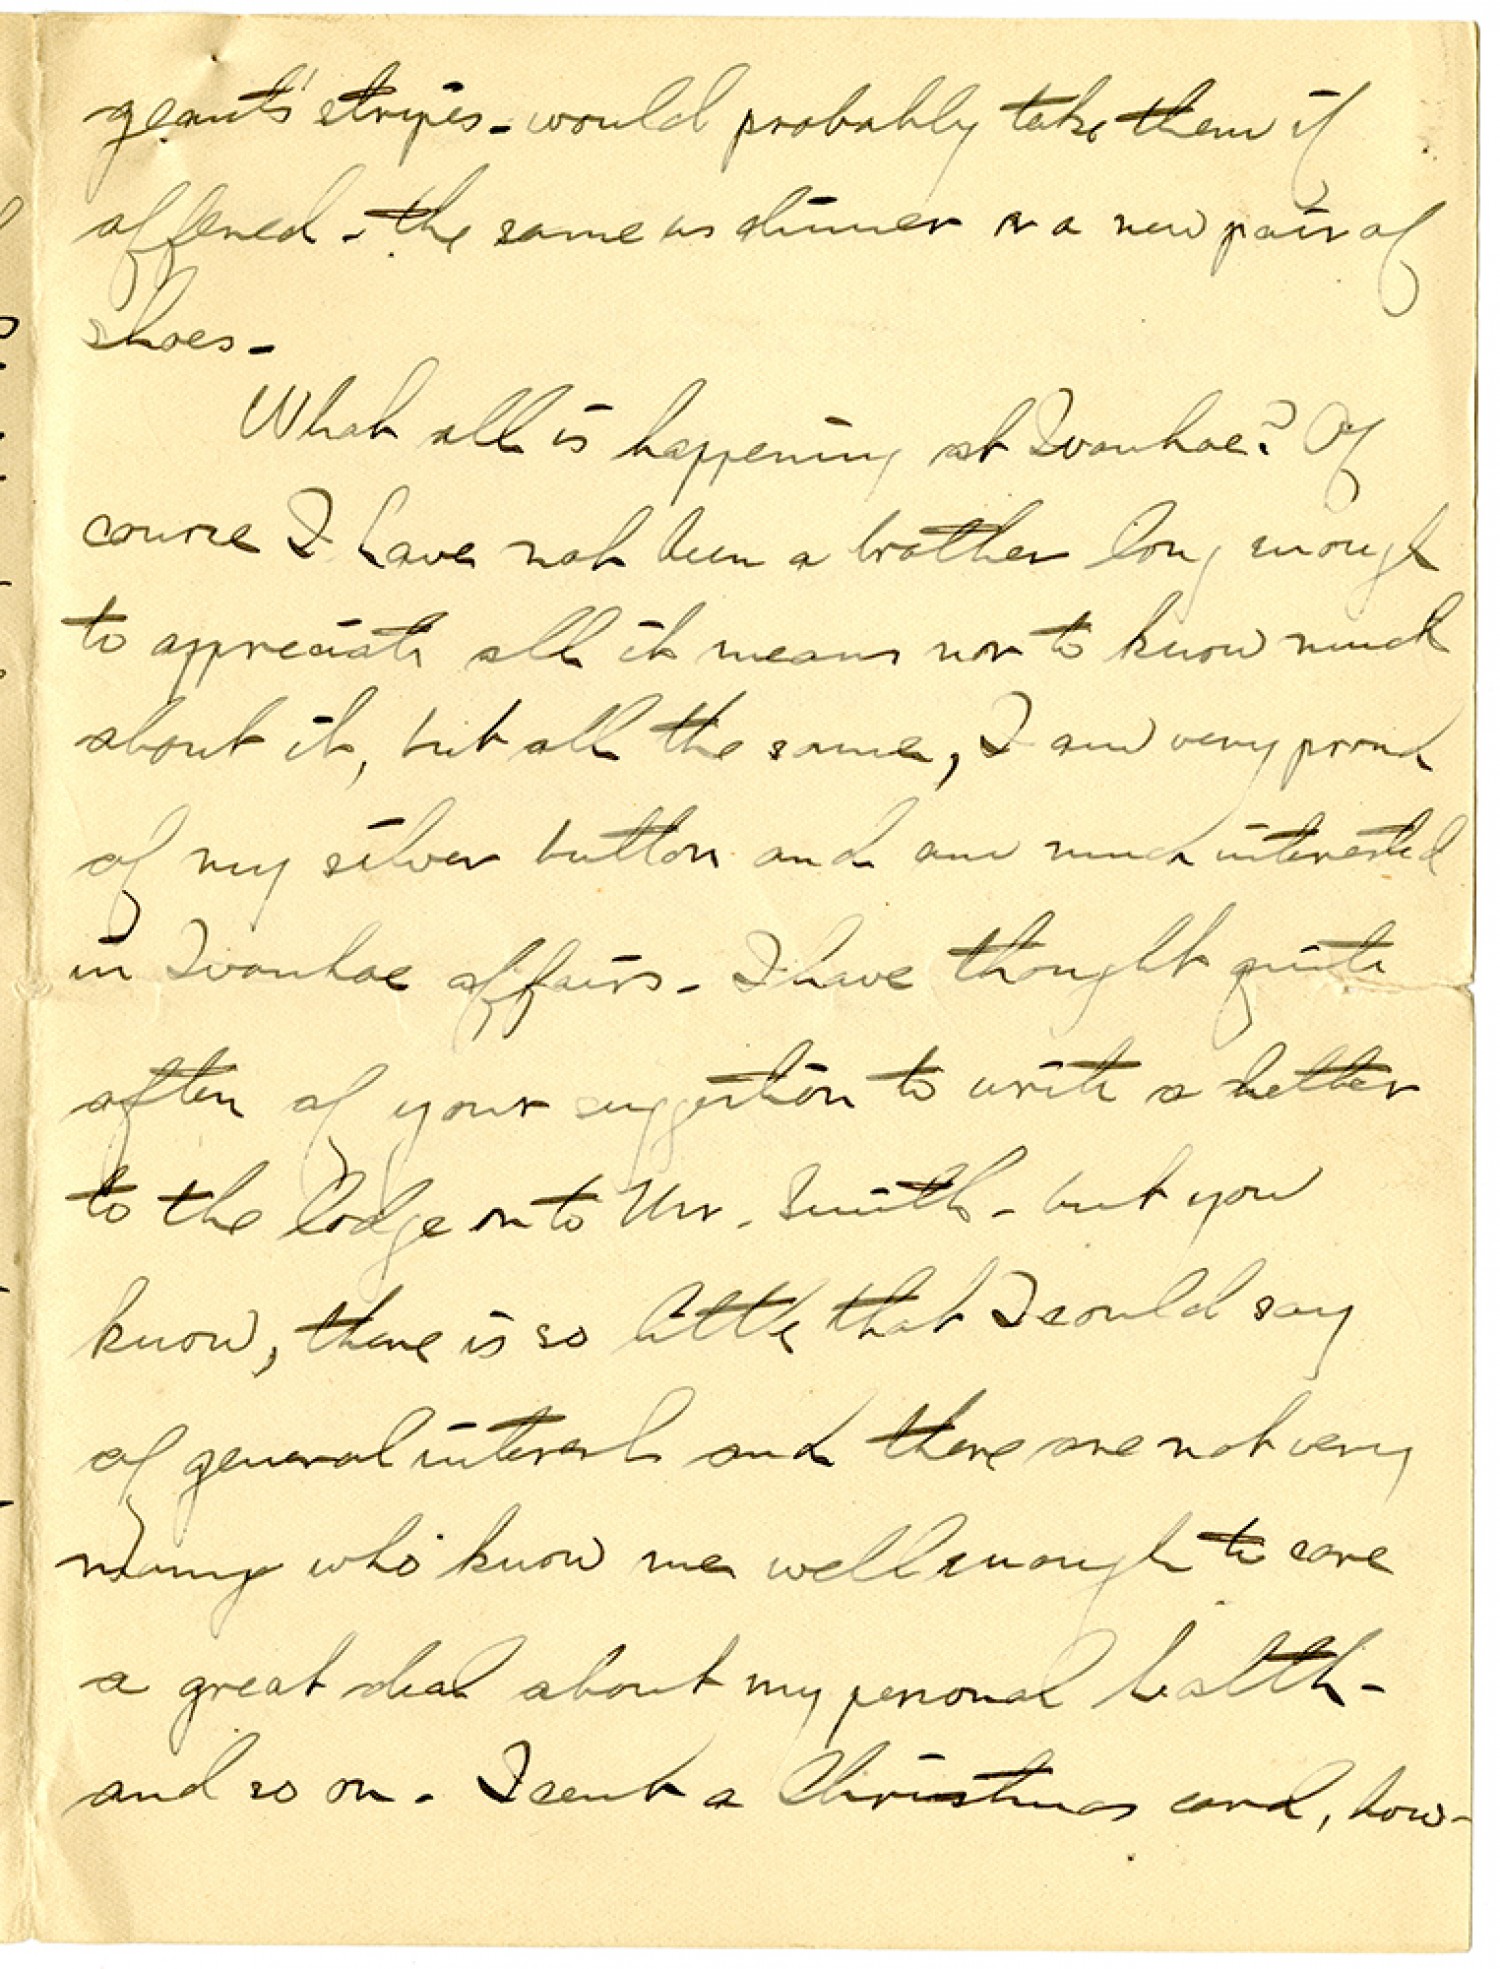 geants' stripes - would probably take them if
offered - the same as dinner or a new pair of
shoes -
What all is happening at Ivanhoe? Of
course I have not been a brother long enough
to appreciate all it means nor to know much
about it, but all the same, I am very proud
of my silver button and am much interested
in Ivanhoe affairs - I have thought quite
often of your suggestion to write a letter
to the lodge or to Mr. Smith - but you
know, there is so little that I could say
of general interest and there are not very
many who know me well enough to care
a great deal about my personal health -
and so on - I sent a Christmas card, how-